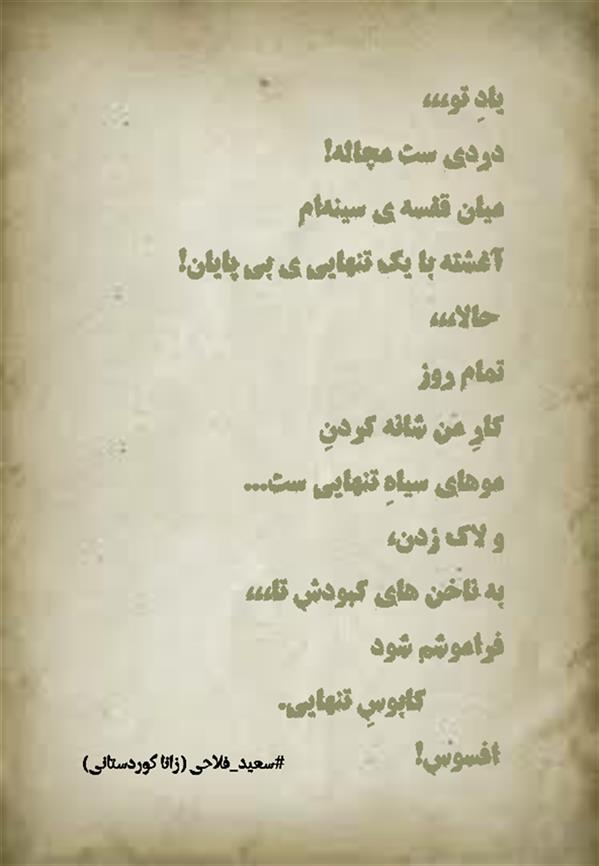 یادِ تو،،،
دردی ست مچاله!
میان قفسه ی سینه‌ام
آغشته با یک تنهایی ی بی پایان!
حالا،،،
تمام روز
کارِ من شانه کردنِ
موهای سیاهِ تنهایی ست...
و لاک زدن،
به ناخن های کبودش تا،،،
فراموشم شود
کابوسِ تنهایی.
افسوس!
#سعید_فلاحی (زانا کوردستانی)